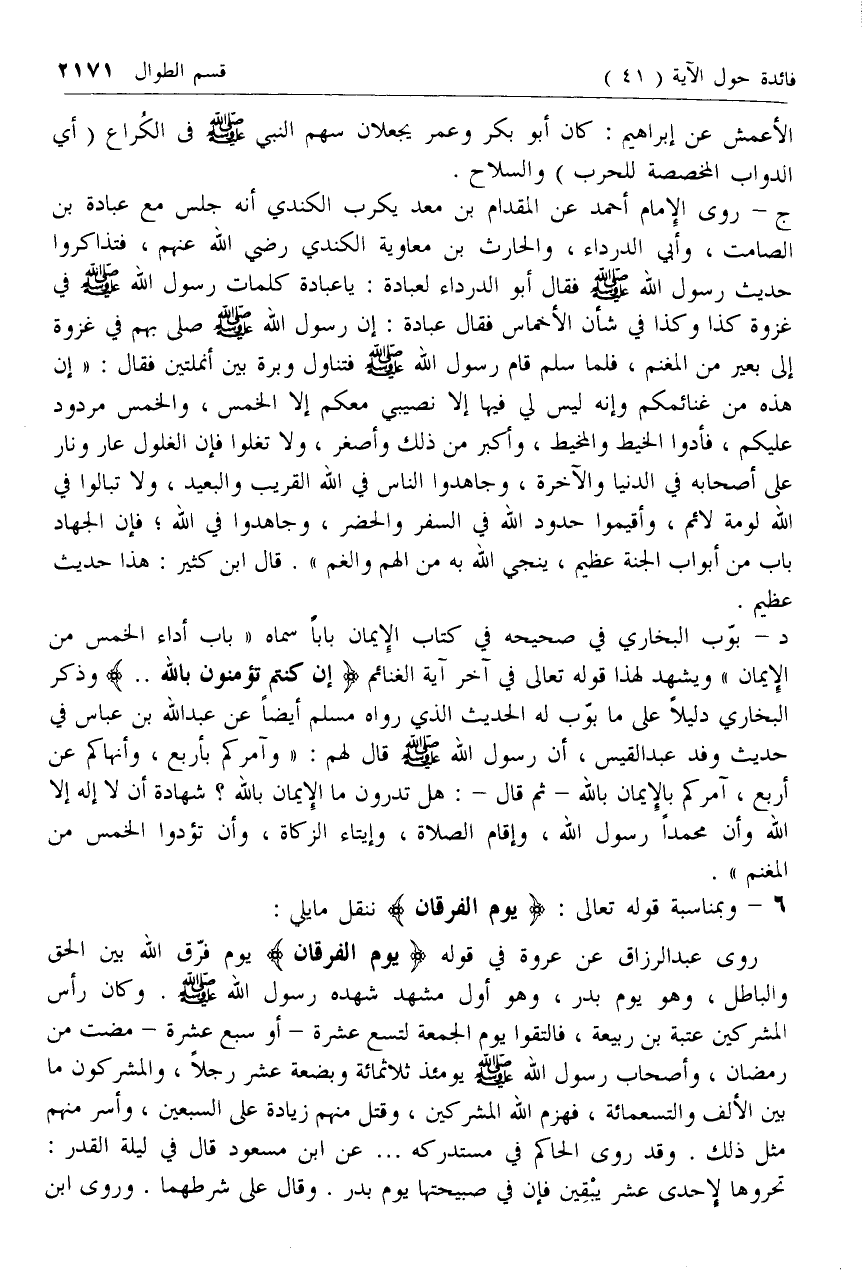 فائدة حول الآية ( ٤١ )
قسم الطوال ٢١٧١
الأعمش عن إبراهيم : كان أبو بكر وعمر يجعلان سهم النبي ﷺ فى الكُراع ( أي
الدواب المخصصة للحرب ) والسلاح .
ج – روى الإمام أحمد عن المقدام بن معد يكرب الكندي أنه جلس مع عبادة بن
الصامت ، وأبي الدرداء ، والحارث بن معاوية الكندي رضي الله عنهم ، فتذاكروا
حديث رسول الله ﷺ فقال أبو الدرداء لعبادة : ياعبادة كلمات رسول الله ﷺ في
غزوة كذا وكذا في شأن الأخماس فقال عبادة : إن رسول الله ﷺ صلى بهم في غزوة
إلى بعير من المغنم ، فلما سلم قام رسول الله ﷺ فتناول وبرة بين أنملتين فقال : « إن
هذه من غنائمكم وإنه ليس لي فيها إلا نصيبي معكم إلا الخمس ، والخمس مردود
عليكم ، فأدوا الخيط والمخيط ، وأكبر من ذلك وأصغر ، ولا تغلوا فإن الغلول عار ونار
على أصحابه في الدنيا والآخرة ، وجاهدوا الناس في الله القريب والبعيد ، ولا تبالوا في
الله لومة لائم ، وأقيموا حدود الله في السفر والحضر ، وجاهدوا في الله ؛ فإن الجهاد
باب من أبواب الجنة عظيم ، ينجي الله به من الهم والغم » . قال ابن كثير : هذا حديث
عظيم .
د – بوّب البخاري في صحيحه في كتاب الإيمان باباً سماه « باب أداء الخمس من
الإيمان » ويشهد لهذا قوله تعالى في آخر آية الغنائم ﴿ إن كنتم تؤمنون بالله .. ﴾ وذكر
البخاري دليلاً على ما بوّب له الحديث الذي رواه مسلم أيضاً عن عبدالله بن عباس في
حديث وفد عبدالقيس ، أن رسول الله ﷺ قال لهم : « وآمركم بأربع ، وأنهاكم عن
أربع ، آمركم بالإيمان بالله – ثم قال – : هل تدرون ما الإيمان بالله ؟ شهادة أن لا إله إلا
الله وأن محمداً رسول الله ، وإقام الصلاة ، وإيتاء الزكاة ، وأن تؤدوا الخمس من
المغنم » .
٦ – وبمناسبة قوله تعالى : ﴿ يوم الفرقان ﴾ ننقل مايلي :
روى عبدالرزاق عن عروة في قوله ﴿ يوم الفرقان ﴾ يوم فرّق الله بين الحق
والباطل ، وهو يوم بدر ، وهو أول مشهد شهده رسول الله ﷺ . وكان رأس
المشركين عتبة بن ربيعة ، فالتقوا يوم الجمعة لتسع عشرة – أو سبع عشرة – مضت من
رمضان ، وأصحاب رسول الله ﷺ يومئذ ثلاثمائة وبضعة عشر رجلاً ، والمشركون ما
بين الألف والتسعمائة ، فهزم الله المشركين ، وقتل منهم زيادة على السبعين ، وأسر منهم
مثل ذلك . وقد روى الحاكم في مستدركه ... عن ابن مسعود قال في ليلة القدر :
تحروها لإحدى عشر يبْقِين فإن في صبيحتها يوم بدر . وقال على شرطهما . وروى ابن